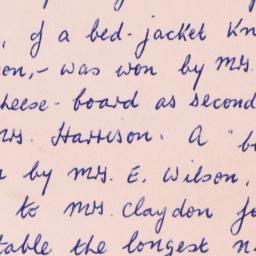 , of a bed-jacket Kn
on,- was won by Mrs.
heese-board as second
rs. Harrison. A "b
by Mrs. E. Wilson,
to Mrs. Claydon fo
table the longest n